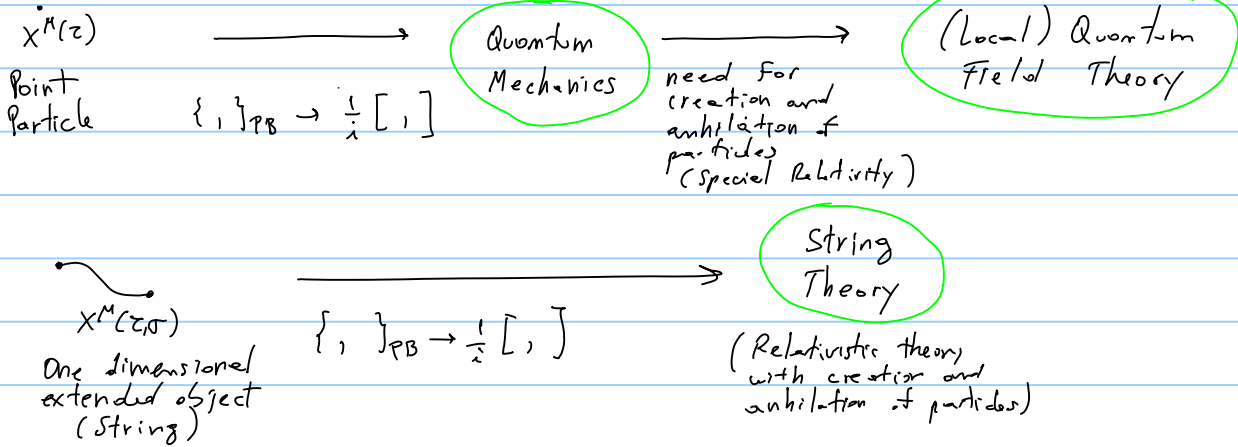 X^μ(τ)
Point
Particle
{ , }_PB → 1/i [ , ]
Quantum
Mechanics
need for
creation and
anhilation of
particles
(Special Relativity)
(Local) Quantum
Field Theory
X^μ(τ,σ)
One dimensional
extended object
(String)
{ , }_PB → 1/i [ , ]
String
Theory
(Relativistic theory
with creation and
anhilation of particles)